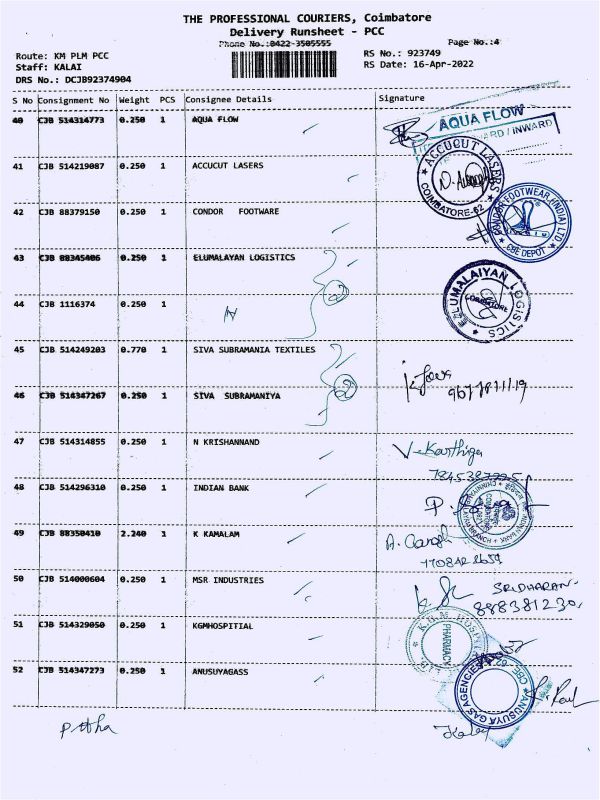 THE PROFESSIONAL COURIERS, Coimbatore
Delivery Runsheet - PCC
Phone No.:0422-3505555
Page No.:4
Route: KM PLM PCC
Staff: KALAI
DRS No.: DCJB92374904
RS No.: 923749
RS Date: 16-Apr-2022
S No Consignment No Weight PCS Consignee Details Signature
40 CJB 514314773 0.250 1 AQUA FLOW
AQUA FLOW
41 CJB 514219087 0.250 1 ACCUCUT LASERS
ACCUCUT LASERS
COIMBATORE-62
42 CJB 88379150 0.250 1 CONDOR FOOTWARE
CONDOR FOOTWEAR (INDIA) LTD
CBE DEPOT
43 CJB 88345406 0.250 1 ELUMALAYAN LOGISTICS
ELUMALAIYAN LOGISTICS
COIMBATORE
44 CJB 1116374 0.250 1
45 CJB 514249203 0.770 1 SIVA SUBRAMANIA TEXTILES
46 CJB 514347267 0.250 1 SIVA SUBRAMANIYA
47 CJB 514314855 0.250 1 N KRISHANNAND
V. Karthiga
48 CJB 514296310 0.250 1 INDIAN BANK
49 CJB 88350410 2.240 1 K KAMALAM
50 CJB 514000604 0.250 1 MSR INDUSTRIES
SRIDHARAN
51 CJB 514329050 0.250 1 KGMHOSPITIAL
PHARMACY
52 CJB 514347273 0.250 1 ANUSUYAGASS
ANUSUYA GAS AGENCIES
Kalai